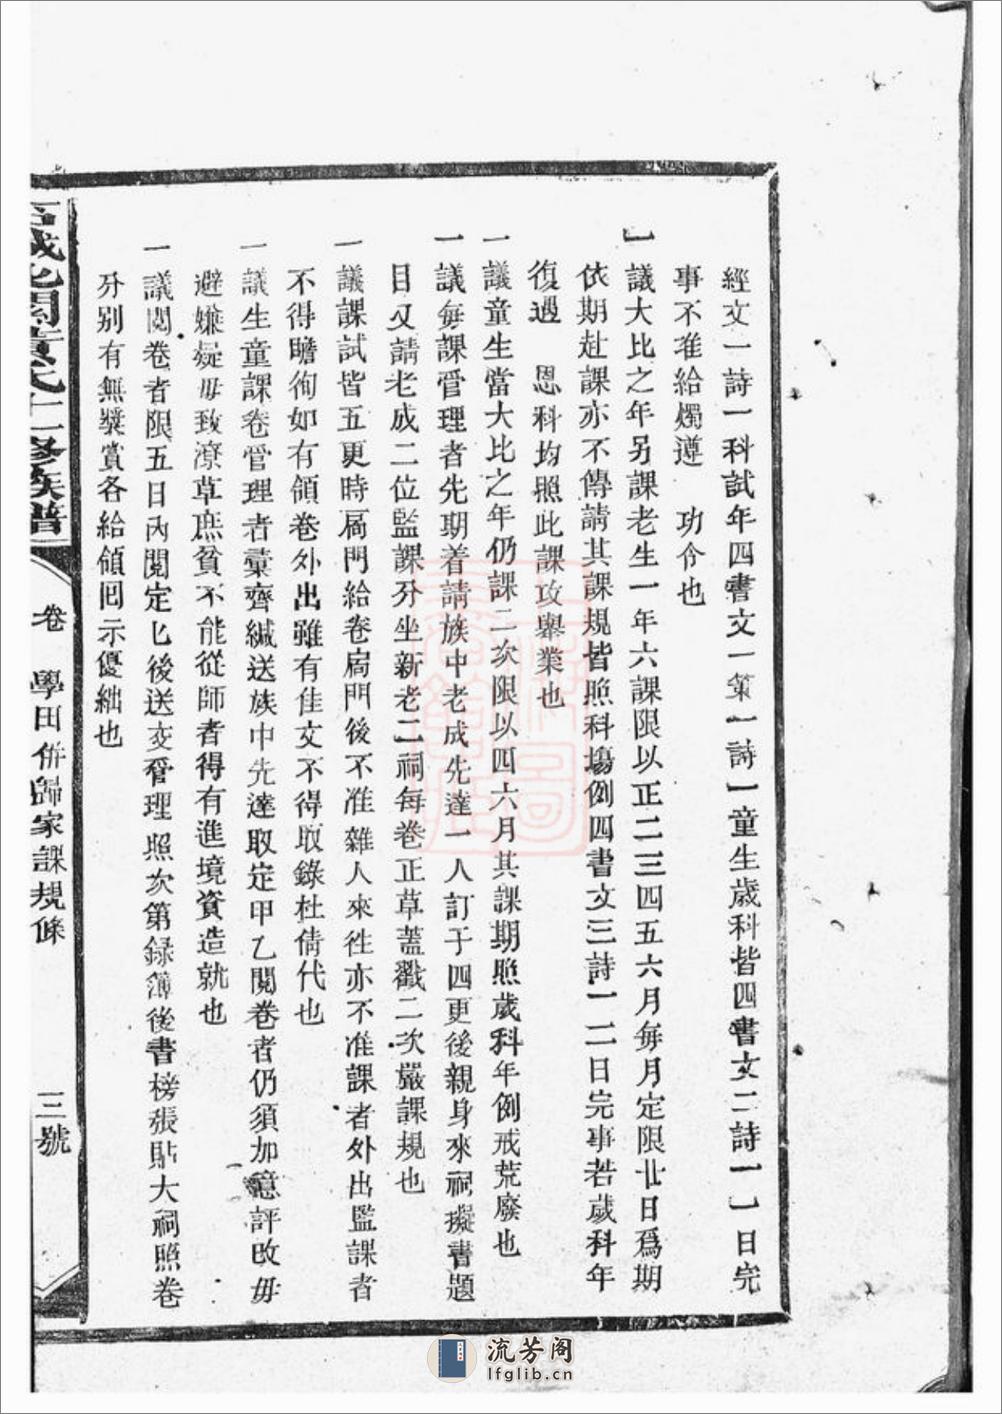 經文一詩一科試年四書文一策一詩一童生歲科皆四書文二詩一一日完
事不准給燭遵 功令也
一議大比之年另課老生一年六課限以正二三四五六月每月定限廿日爲期
依期赴課亦不傳請其課規皆照科塲例四書文三詩一二日完事若歲科年
復遇 恩科均照此課攻舉業也
一議童生當大比之年仍課二次限以四六月其課期照歲科年例戒荒廢也
一議每課管理者先期着請族中老成先達一人訂于四更後親身來祠擬書題
目又請老成二位監課分坐新老二祠每卷正草蓋戳二次嚴課規也
一議課試皆五更時扃門給卷扃門後不准雜人來往亦不准課者外出監課者
不得瞻徇如有領卷外出雖有佳文不得取錄杜倩代也
一議生童課卷管理者彙齊緘送族中先達取定甲乙閱卷者仍須加意評改毋
避嫌疑毋致潦草庶貧不能從師者得有進境資造就也
一議閱卷者限五日內閱定乚後送交管理照次第録簿後書榜張貼大祠照卷
分别有無獎賞各給領囘示優絀也
卷 學田併歸家課規條 三號
流芳阁
lfglib.cn